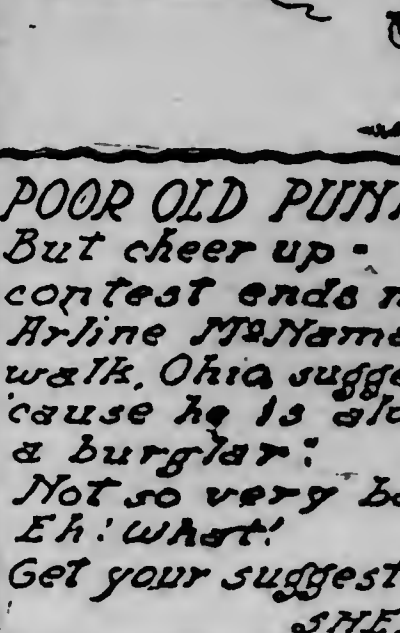 POOR OLD PUN
But cheer up -
contest ends n
Arline McNama
walk, Ohio sugge
'cause he is alo
a burglar:
Not so very ba
Eh! What!
Get your suggest
SHE